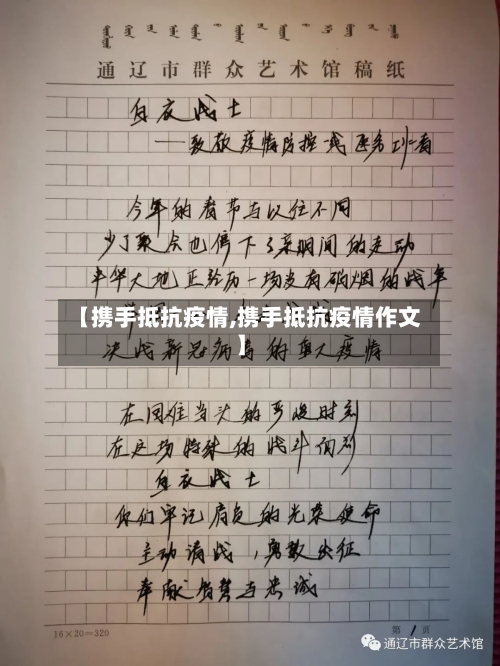 通辽市群众艺术馆稿纸
白衣战士
——致敬疫情防控一线医务工作者
今年的春节与以往不同
少了聚会也停下了亲朋间的走动
中华大地正经历一场没有硝烟的战争
【携手抵抗疫情,携手抵抗疫情作文
】
决战新冠病毒的重大疫情
在国难当头的严峻时刻
在这场特殊的战斗面前
白衣战士
你们牢记肩负的光荣使命
主动请战，勇敢出征
奉献智慧与忠诚
16×20=320
第1页
通辽市群众艺术馆